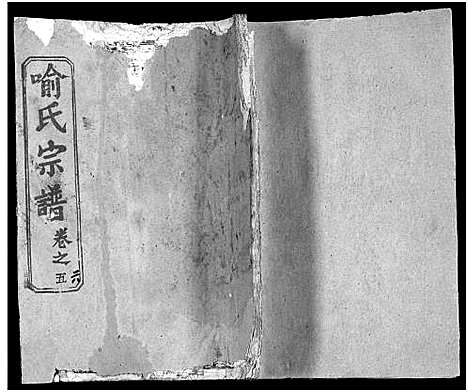 喻氏宗譜
卷之五